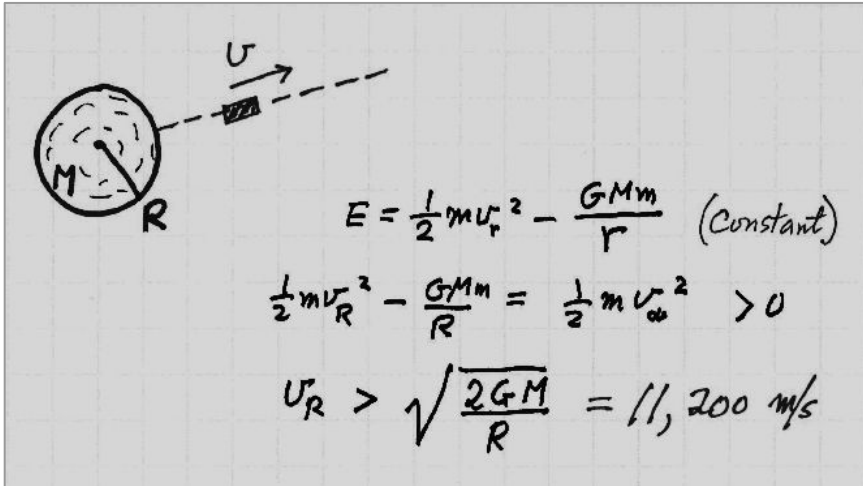 υ
M
R
E = ½ m υ_r² − GMm/r (Constant)
½ m υ_R² − GMm/R = ½ m υ_∞² > 0
υ_R > √(2GM/R) = 11,200 m/s